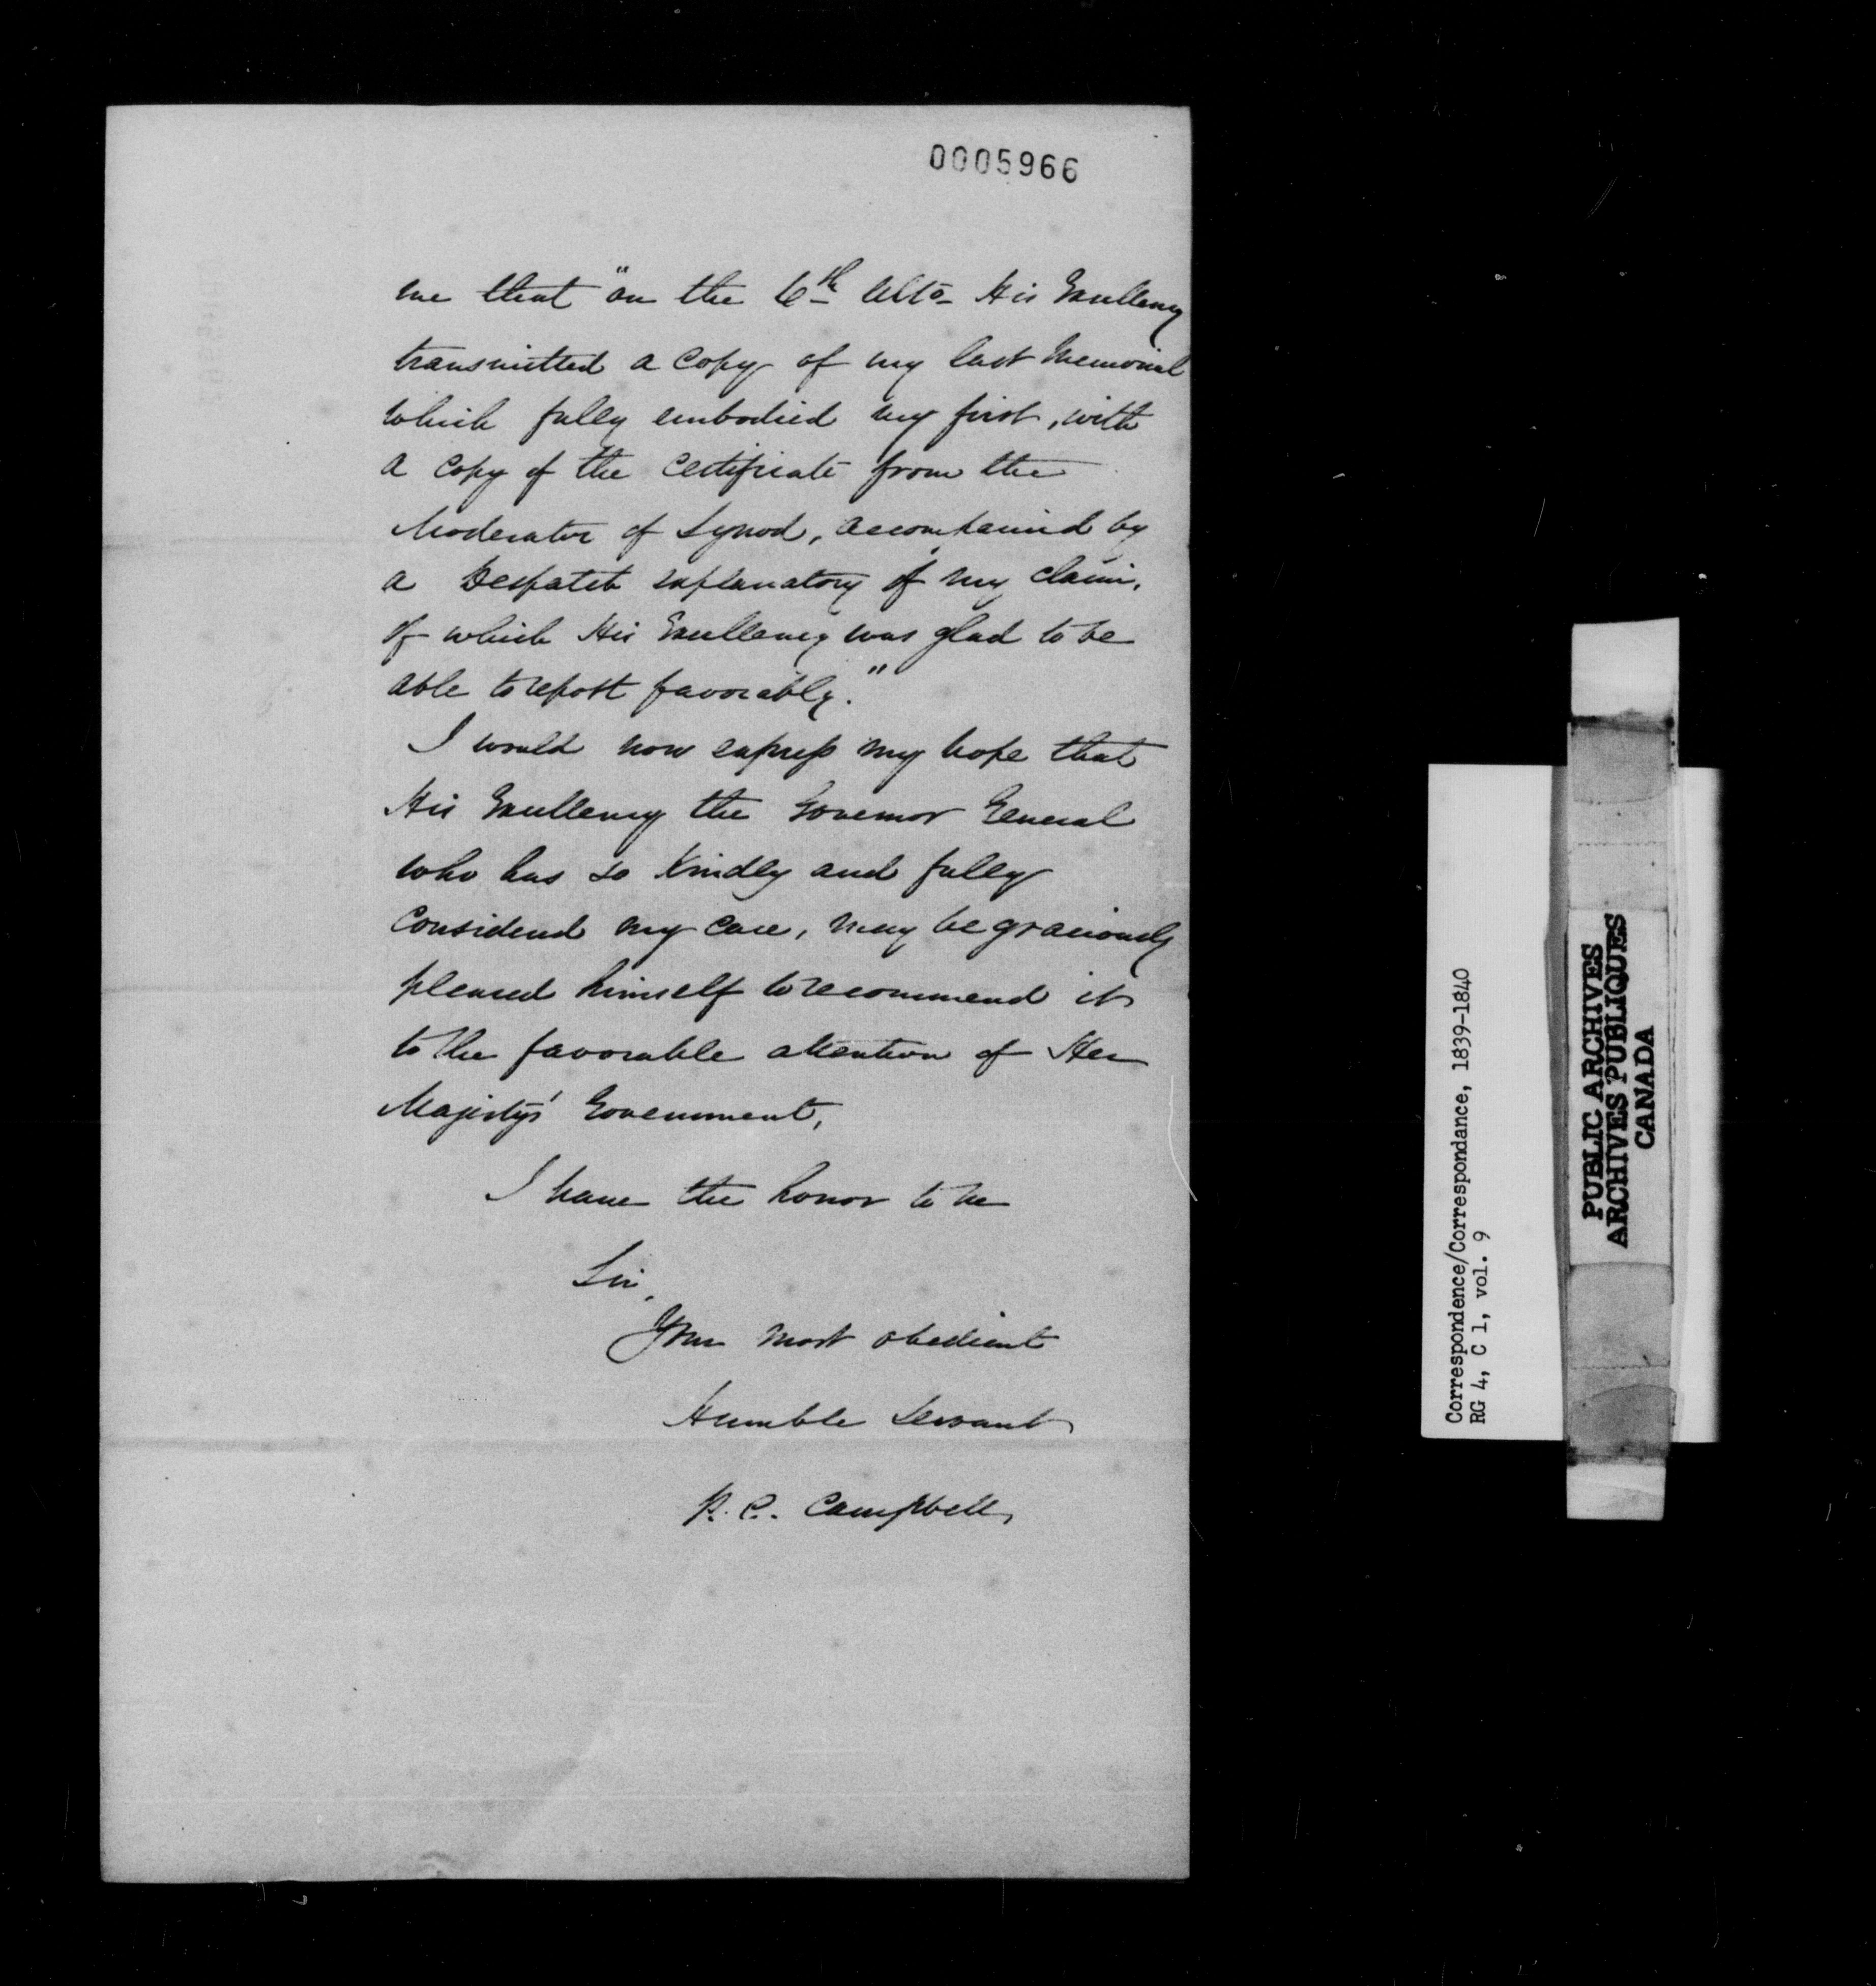 0005966
me that "on the 6th Ulto His Excellency
transmitted a Copy of my last Memorial
which fully embodied my first, with
a Copy of the Certificate from the
Moderator of Synod, accompanied by
a Despatch explanatory of my claim,
of which His Excellency was glad to be
able to report favorably."
I would now express my hope that
His Excellency the Governor General
who has so kindly and fully
Considered my case, may be graciously
pleased himself to recommend it
to the favorable attention of Her
Majesty's Government,
I have the honor to be
Sir,
Your most obedient
Humble Servant
P. C. Campbell,
Correspondence/Correspondance, 1839-1840
RG 4, C 1, vol. 9
PUBLIC ARCHIVES
ARCHIVES PUBLIQUES
CANADA